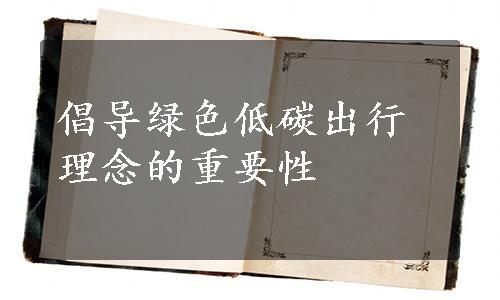 倡导绿色低碳出行
理念的重要性